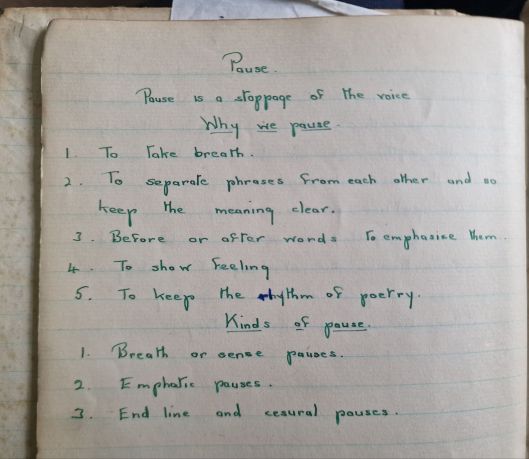 Pause.
Pause is a stoppage of the voice
Why we pause.
1. To take breath.
2. To separate phrases from each other and so
keep the meaning clear.
3. Before or after words to emphasise them.
4. To show feeling
5. To keep the rhythm of poetry.
Kinds of pause.
1. Breath or sense pauses.
2. Emphatic pauses.
3. End line and cesural pauses.